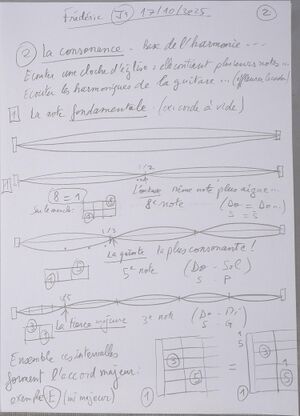 Frédéric J1 17/10/2025. 2
2 La consonance - base de l'harmonie ...
Ecouter une cloche d'église : elle contient plusieurs notes...
Ecouter les harmoniques de la guitare ... (effleurer la corde)
1 La note fondamentale (ex: corde à vide)
1 1/2
8 = 1 L'octave même note plus aigue...
8e note (Do = Do..
S = S
1/3
La quinte la plus consonante !
5e note (Do - Sol)
S - P
1/5
La tierce majeure 3e note (Do - Mi
S - G
Ensemble ces intervalles
forment l'accord majeur.
exemple E (mi majeur)
3 5 1 = 3 5 1